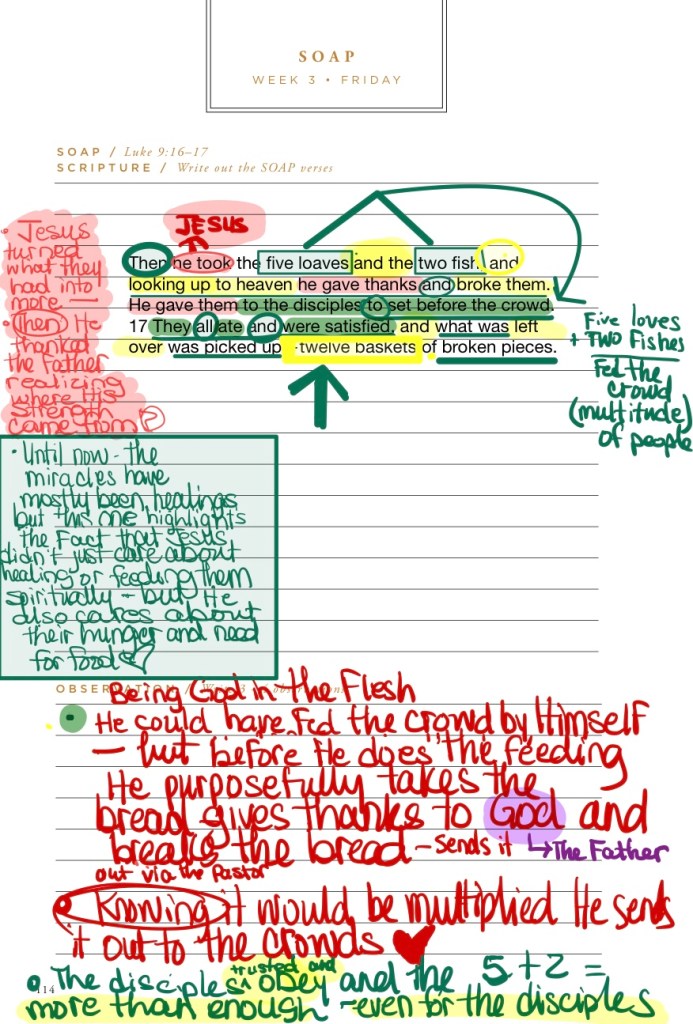 SOAP
WEEK 3 • FRIDAY
SOAP / Luke 9:16–17
SCRIPTURE / Write out the SOAP verses
JESUS
Then he took the five loaves and the two fish, and
looking up to heaven he gave thanks and broke them.
He gave them to the disciples to set before the crowd.
17 They all ate and were satisfied, and what was left
over was picked up - twelve baskets of broken pieces.
• Jesus
turned
what they
had into
more —
• Then He
thanked
the Father
realizing
where His
strength
came from
Five loves
+ TWO Fishes
Fed the
crowd
(multitude)
of people
• Until now - the
miracles have
mostly been healings
but this one highlights
the Fact that Jesus
didn't just care about
healing or feeding them
spiritually - but He
also cares about
their hunger and need
for food
OBSERVATION /
Being God in the Flesh
• He could have fed the crowd by Himself
— but before He does the feeding
He purposefully takes the
bread gives thanks to God and
breaks the bread - sends it
↳ The Father
out via the Pastor
• Knowing it would be multiplied He sends
it out to the crowds ♥
• The disciples trusted and obey and the 5 + 2 =
more than enough - even for the disciples
114